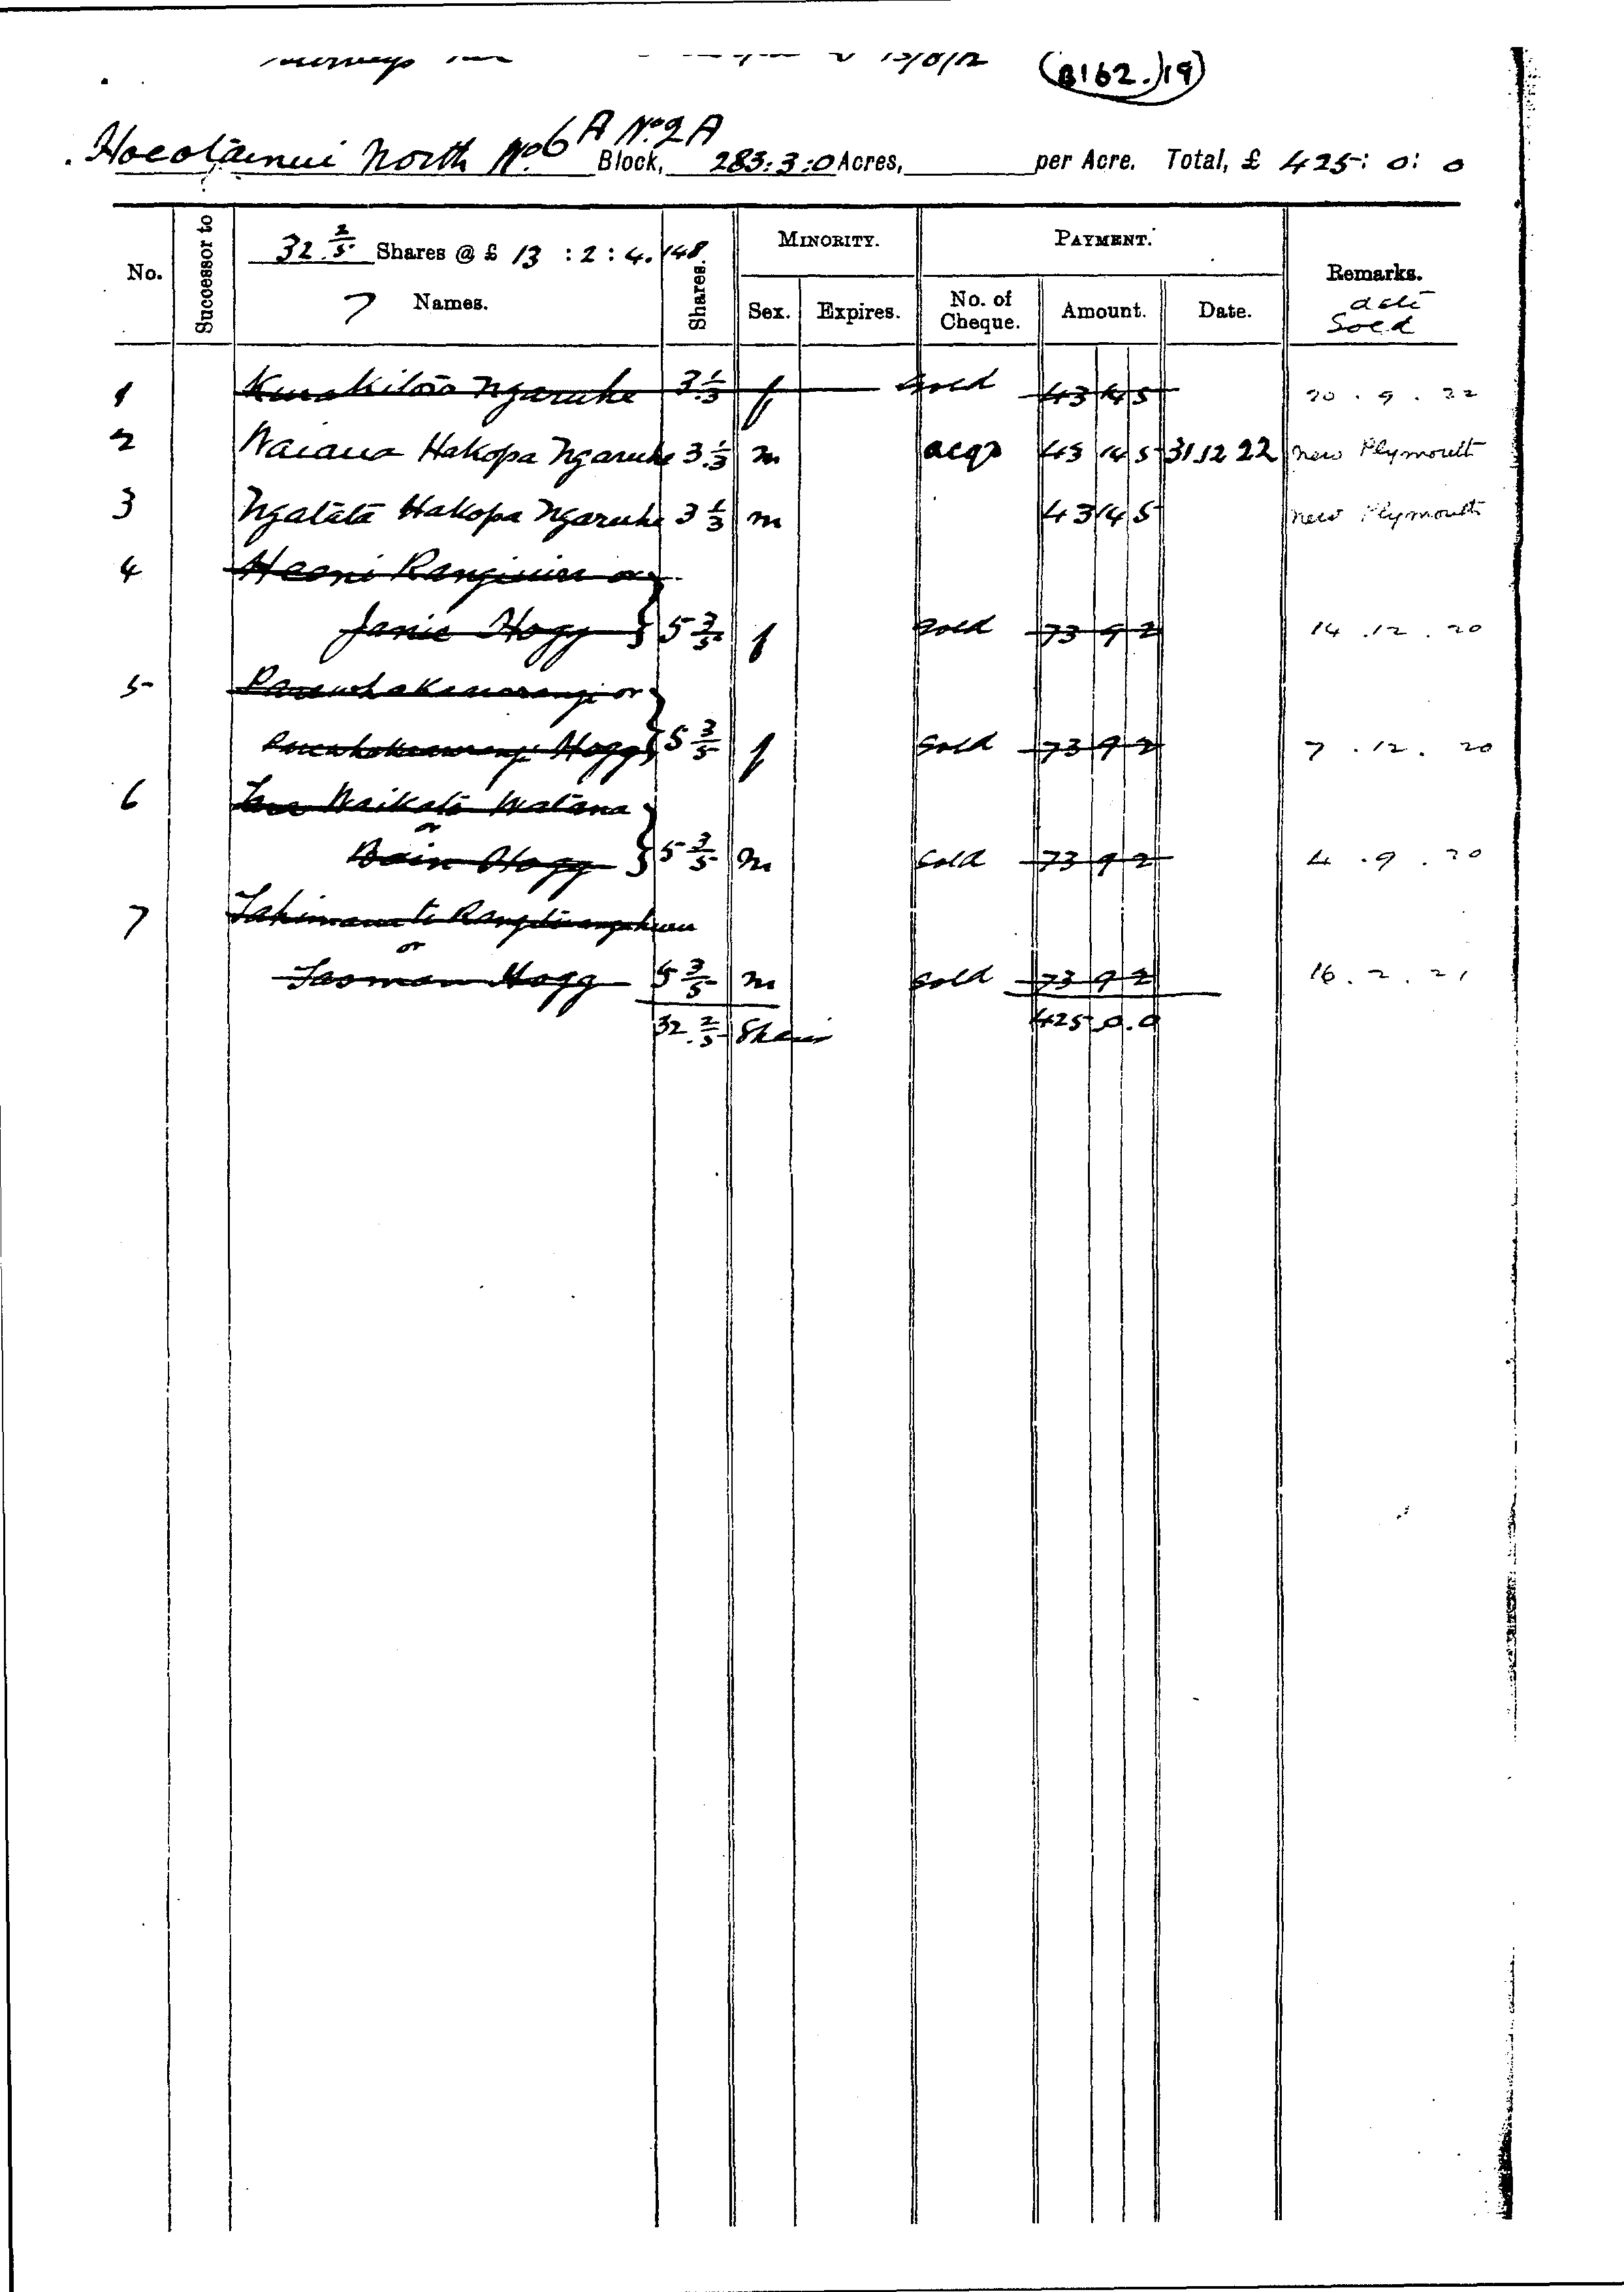 surveys 12/8/12 (B162.)19)
Hoeotainui North No. 6A No. 2A Block, 283:3:0 Acres, per Acre. Total, £ 425: 0: 0
No. Successor to 32 2/5 Shares @ £ 13 : 2 : 4.148 Shares. MINORITY. PAYMENT. Remarks.
7 Names. Sex. Expires. No. of Cheque. Amount. Date. date Sold
1 Ngaruhe 3 1/3 f Sold 43 14 5 20 . 9 . 22
2 Waiaua Hakopa Ngaruhe 3 1/3 m acqd 43 14 5 31.12 22 New Plymouth
3 Ngatata Hakopa Ngaruhe 3 1/3 m 43 14 5 New Plymouth
4 Heoni or
Janie Hogg } 5 3/5 f Sold 73 9 2 14 . 12 . 20
5 or
Hogg } 5 3/5 f Sold 73 9 2 7 . 12 . 20
6 Waikato Watana
or
Bain Hogg } 5 3/5 m Sold 73 9 2 4 . 9 . 20
7 Takimana te
or
Tasman Hogg 5 3/5 m Sold 73 9 2 16 . 2 . 21
32 2/5 Shares 425 . 0 . 0